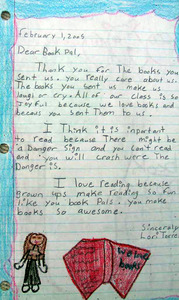 February 1, 2005
Dear Book Pal,
Thank you for The books you
sent us. you really care about us.
The books you sent us make us
laugh or cry. All of our class is so
Joyful because we love books and
because you sent Them to us.
I Think it is inportant
to read because There might be
a Danger sign and you can't read
and you will crash were The
Danger is.
I love reading because
grown ups make reading so fun
like you book Pals. you make
books so awesome.
Sincerely
Lori
We love
books